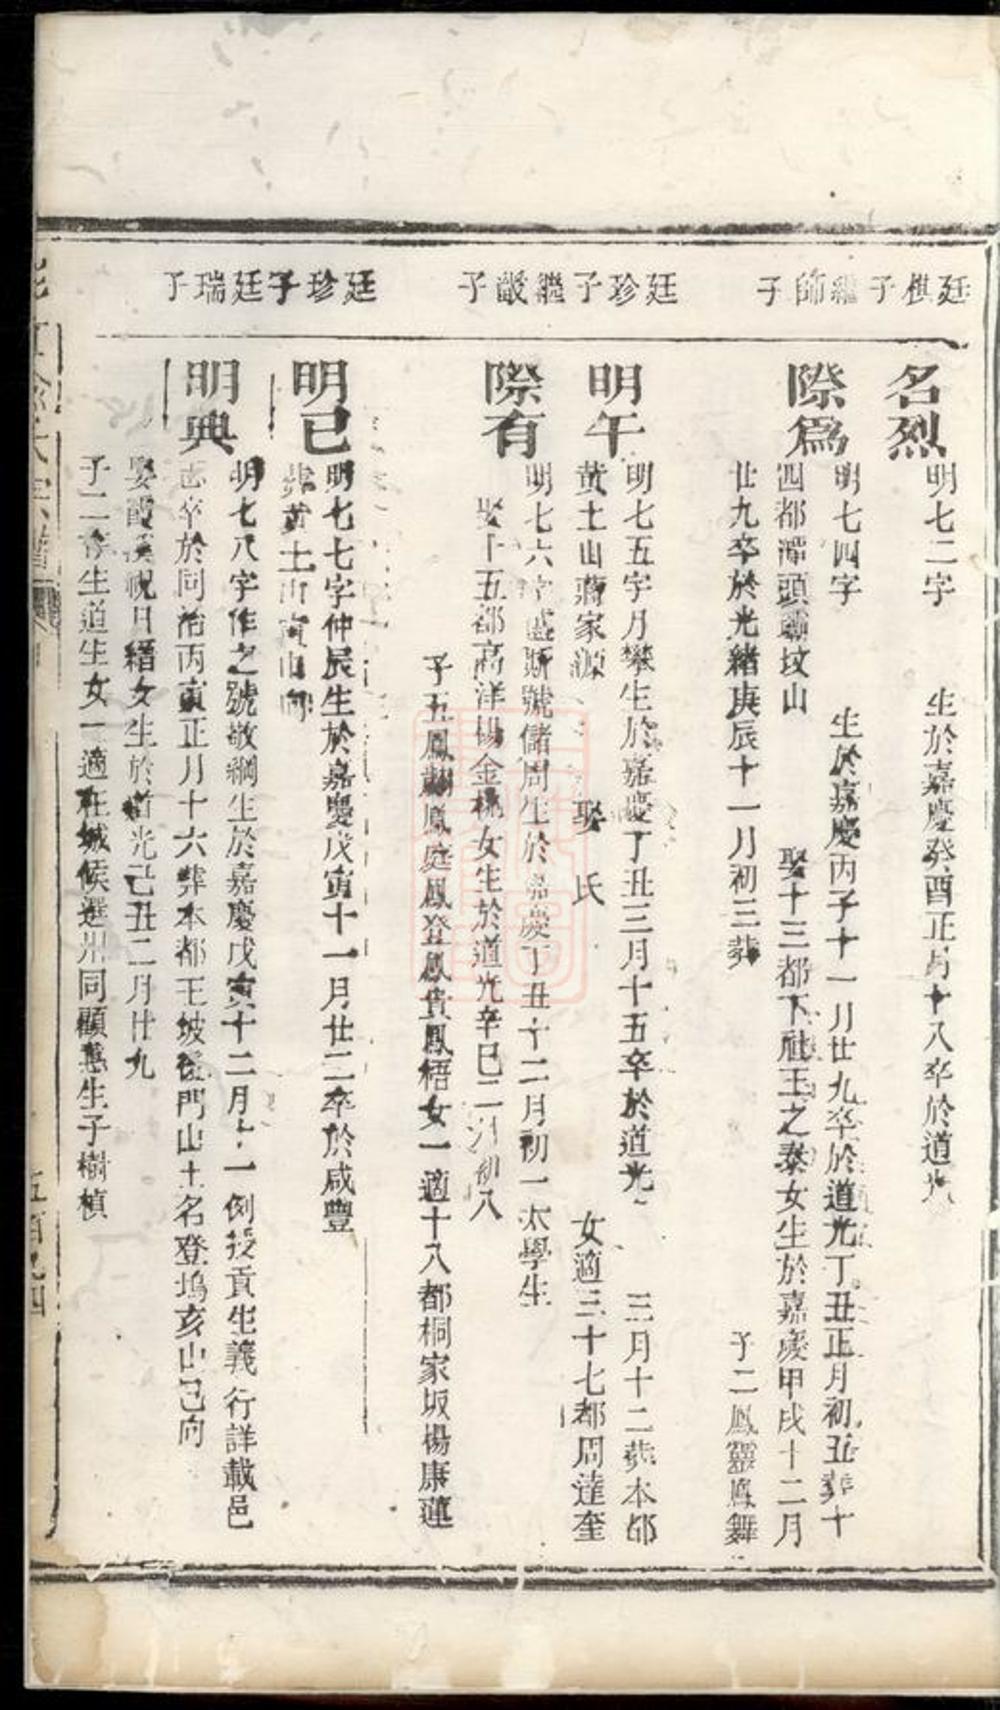 廷棋子
繼師子
廷珍子
繼黻子
廷珍子
廷瑞子
名烈
明七二字 生於嘉慶癸酉正月十八卒於道光
際為
明七四字 生於嘉慶丙子十一月廿九卒於道光丁丑正月初五葬十
四都潭頭 墳山 娶十三都下社王之泰女生於嘉慶甲戌十二月
廿九卒於光緒庚辰十一月初三葬 子二鳳靈鳳舞
明午
明七五字月攀生於嘉慶丁丑三月十五卒於道光 三月十二葬本都
黃土山蔣家源 娶 氏 女適三十七都周達奎
際有
明七六字盛斯號儲周生於嘉慶丁丑十二月初一太學生
娶十五都高洋楊金桃女生於道光辛巳二月初八
子五鳳翽鳳庭鳳登鳳貴鳳梧女一適十八都桐家坂楊康蓮
明已
明七七字仲辰生於嘉慶戊寅十一月廿二卒於咸豐
葬黃土山寅山向
明典
明七八字作之號敬綱生於嘉慶戊寅十二月十一例授貢生義行詳載邑
志卒於同治丙寅正月十六葬本都王坡後門山土名登塢亥山己向
娶霞溪祝日縉女生於道光己丑二月廿九
子二 生道生女一適在城候選州同顧惠生子樹楨
五百九四